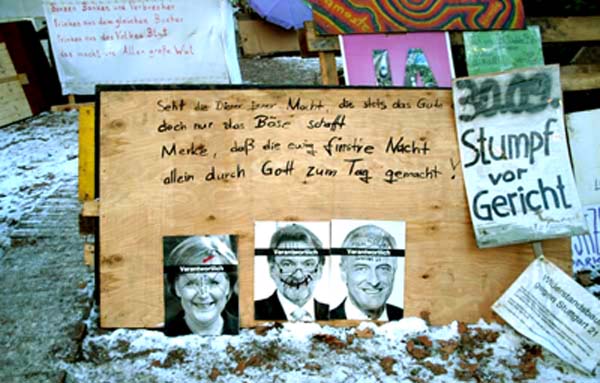 Börsen Banken und Verbrecher
trinken aus dem gleichen Becher
trinken aus des Volkes Blut
das macht uns Allen große Wut
Seht die Diener jener Macht, die stets das Gute
doch nur das Böse schafft
Merke, daß die ewig finstre Nacht
allein durch Gott zum Tag gemacht!
30.09.
Stumpf
vor
Gericht
Verantwortlich
Verantwortlich
Verantwortlich
gegen Stuttgart 21